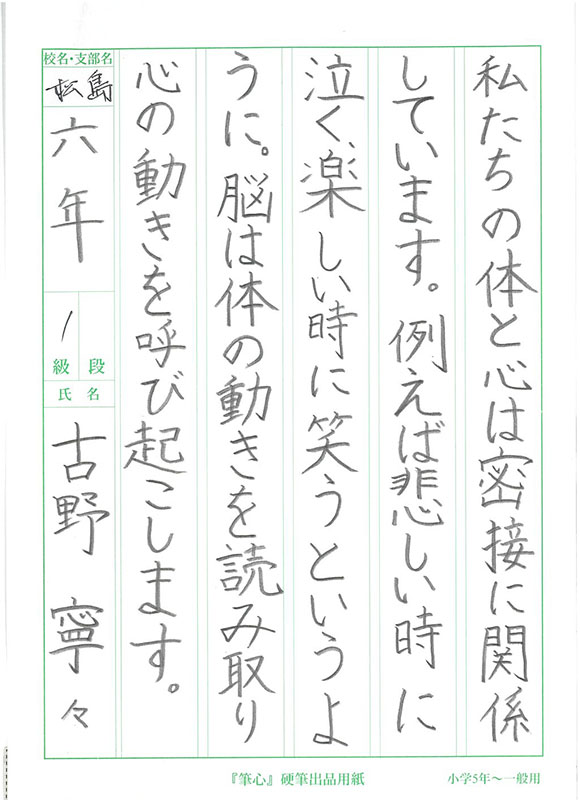 私たちの体と心は密接に関係
しています。例えば悲しい時に
泣く、楽しい時に笑うというよ
うに。脳は体の動きを読み取り
心の動きを呼び起こします。
校名・支部名
松島
六年
1
級 段
氏名
古野 寧々
『筆心』硬筆出品用紙
小学5年～一般用